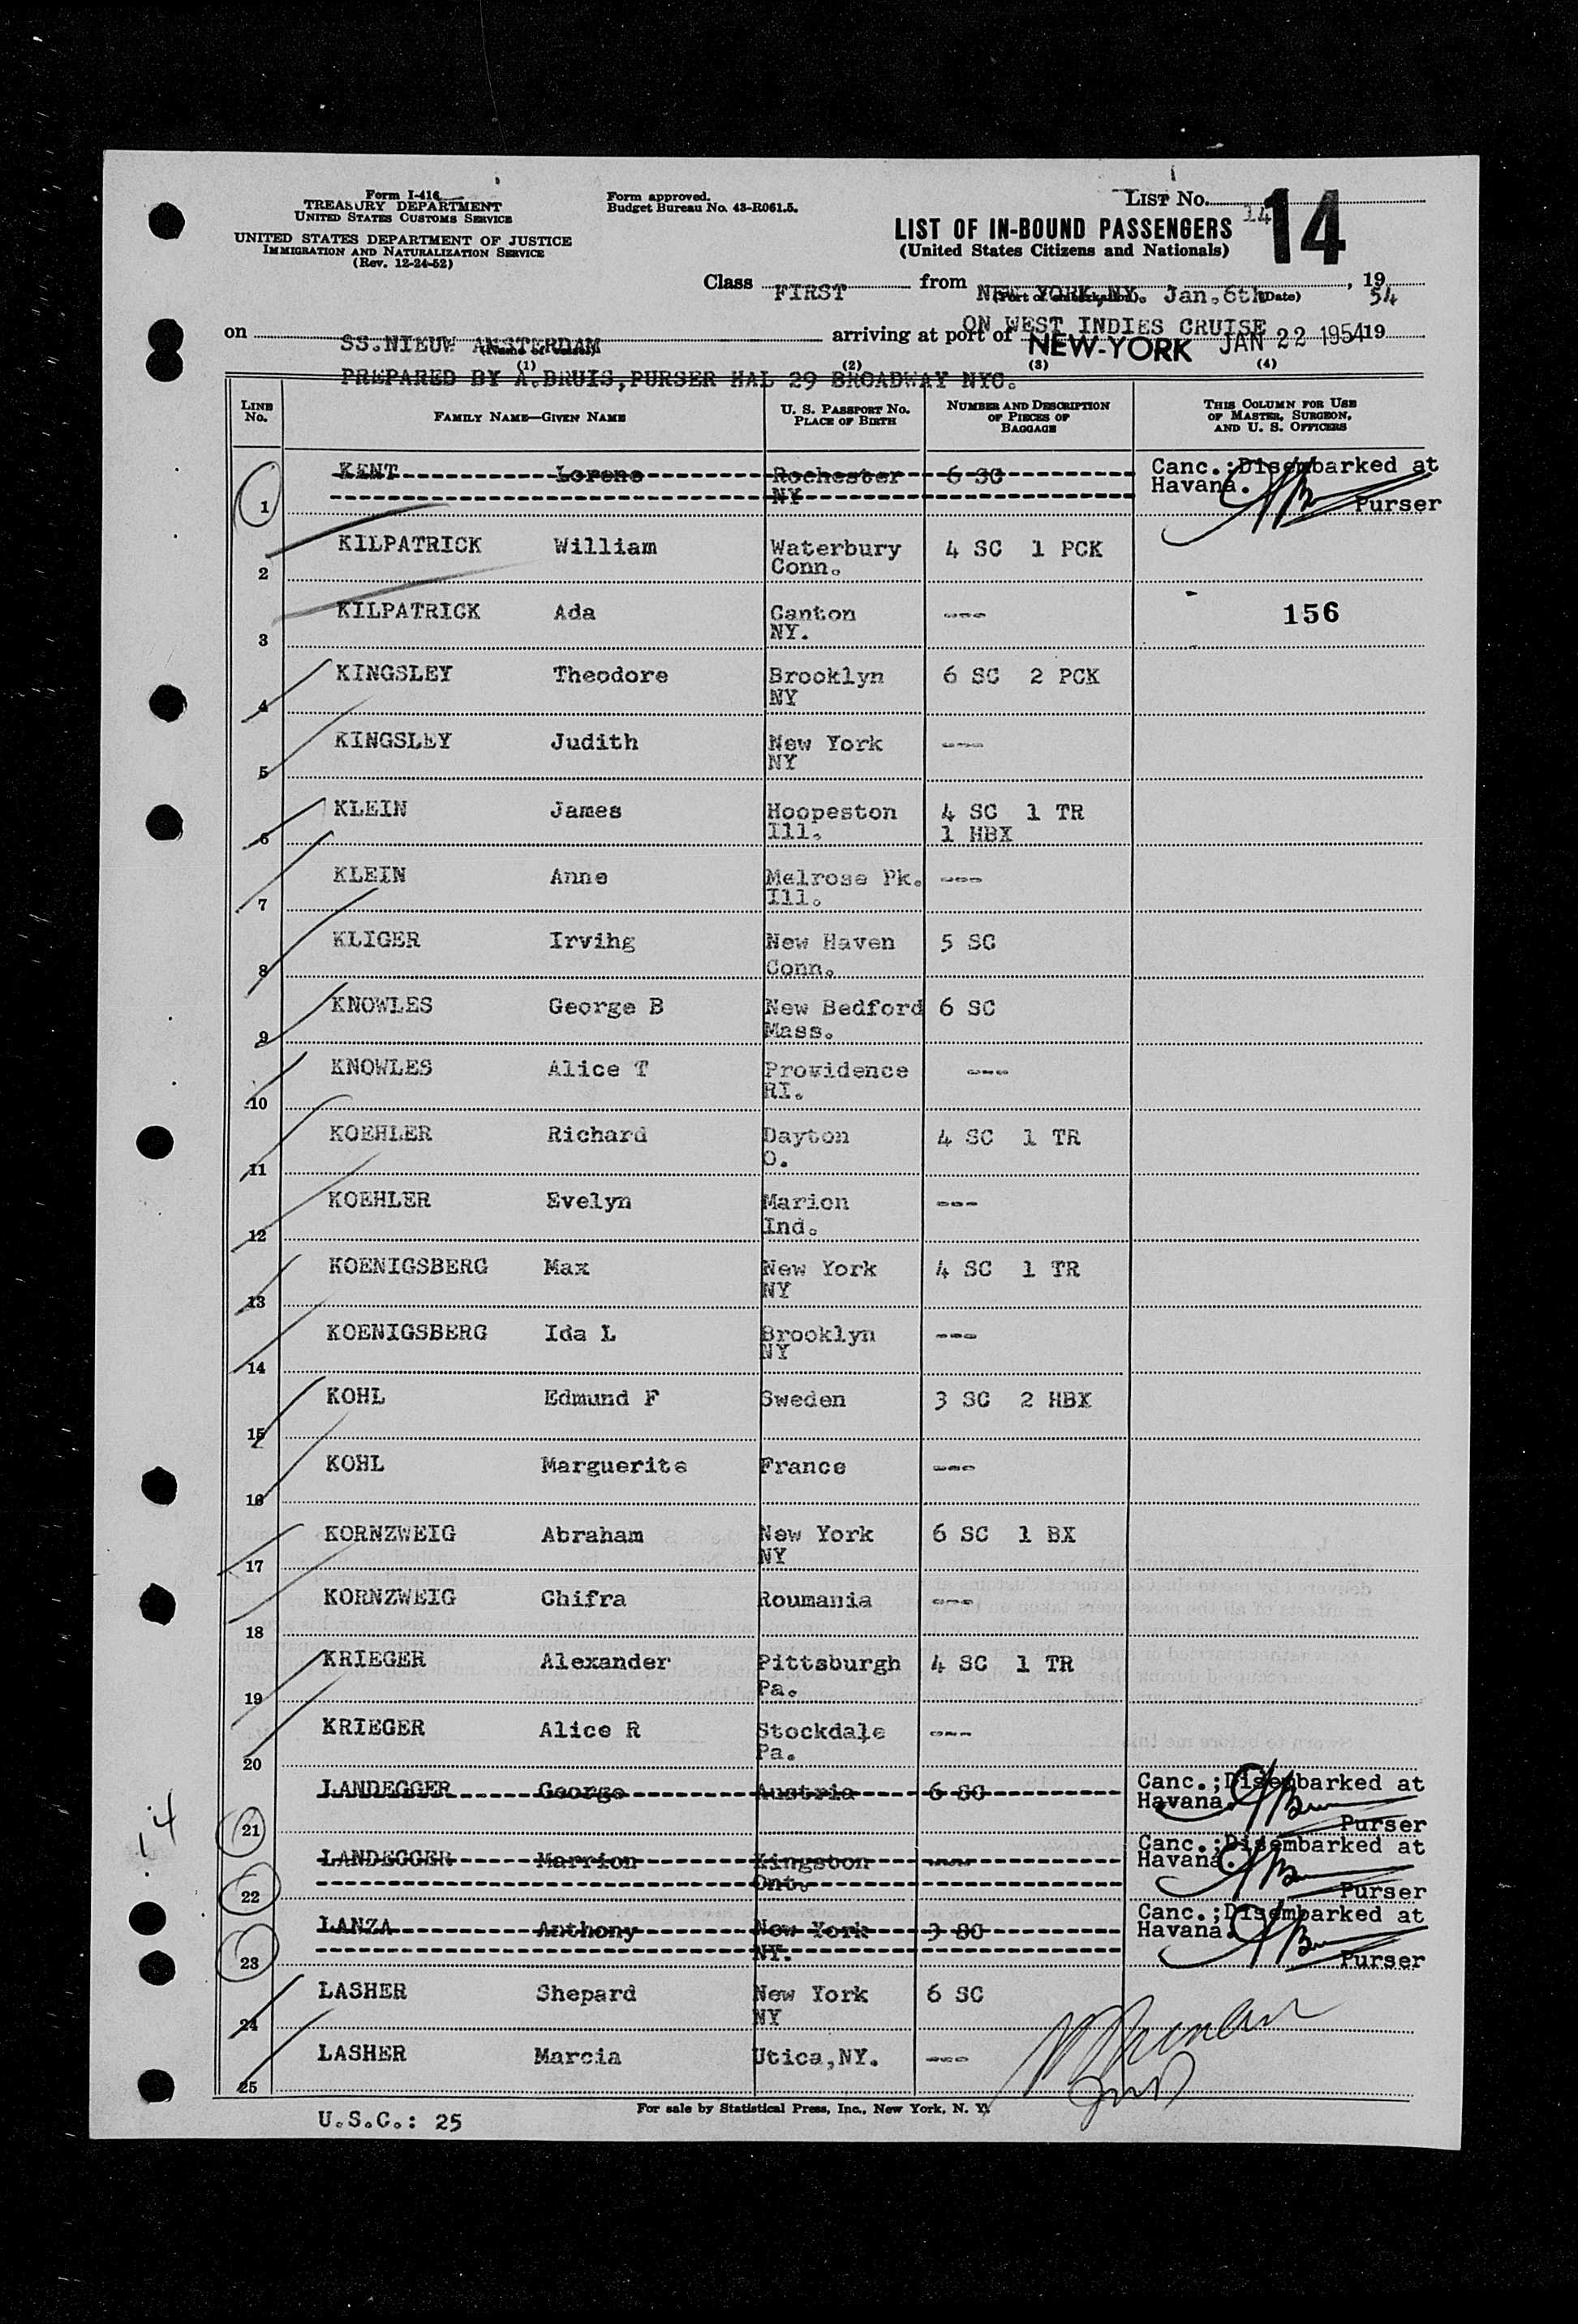 Form I-416
TREASURY DEPARTMENT
UNITED STATES CUSTOMS SERVICE
UNITED STATES DEPARTMENT OF JUSTICE
IMMIGRATION AND NATURALIZATION SERVICE
(Rev. 12-24-52)
Form approved.
Budget Bureau No. 43-R061.5.
LIST No. 14 14
LIST OF IN-BOUND PASSENGERS
(United States Citizens and Nationals)
Class FIRST from NEW YORK, NY. Jan. 6th (Date), 19 54
ON WEST INDIES CRUISE
on SS.NIEUW AMSTERDAM arriving at port of NEW-YORK JAN 22 1954 19
(1) (2) (3) (4)
PREPARED BY A.BRUIS,PURSER HAL 29 BROADWAY NYC.
LINE No. FAMILY NAME—GIVEN NAME U. S. PASSPORT No. PLACE OF BIRTH NUMBER AND DESCRIPTION OF PIECES OF BAGGAGE THIS COLUMN FOR USE OF MASTER, SURGEON, AND U. S. OFFICERS
1 KENT Lorene Rochester NY 6 SC Canc.;Disembarked at Havana. Purser
2 KILPATRICK William Waterbury Conn. 4 SC 1 PCK
3 KILPATRICK Ada Canton NY. --- 156
4 KINGSLEY Theodore Brooklyn NY 6 SC 2 PCK
5 KINGSLEY Judith New York NY ---
6 KLEIN James Hoopeston Ill. 4 SC 1 TR 1 HBX
7 KLEIN Anne Melrose Pk. Ill. ---
8 KLIGER Irvihg New Haven Conn. 5 SC
9 KNOWLES George B New Bedford Mass. 6 SC
10 KNOWLES Alice T Providence RI. ---
11 KOEHLER Richard Dayton O. 4 SC 1 TR
12 KOEHLER Evelyn Marion Ind. ---
13 KOENIGSBERG Max New York NY 4 SC 1 TR
14 KOENIGSBERG Ida L Brooklyn NY ---
15 KOHL Edmund F Sweden 3 SC 2 HBX
16 KOHL Marguerite France ---
17 KORNZWEIG Abraham New York NY 6 SC 1 BX
18 KORNZWEIG Chifra Roumania ---
19 KRIEGER Alexander Pittsburgh Pa. 4 SC 1 TR
20 KRIEGER Alice R Stockdale Pa. ---
21 LANDEGGER George Austria 6 SC Canc.;Disembarked at Havana. Purser
22 LANDEGGER Marrion Kingston Ont. --- Canc.;Disembarked at Havana. Purser
23 LANZA Anthony New York NY. 3 SC Canc.;Disembarked at Havana. Purser
24 LASHER Shepard New York NY 6 SC
25 LASHER Marcia Utica,NY. ---
14
U.S.C.: 25
For sale by Statistical Press, Inc., New York, N. Y.